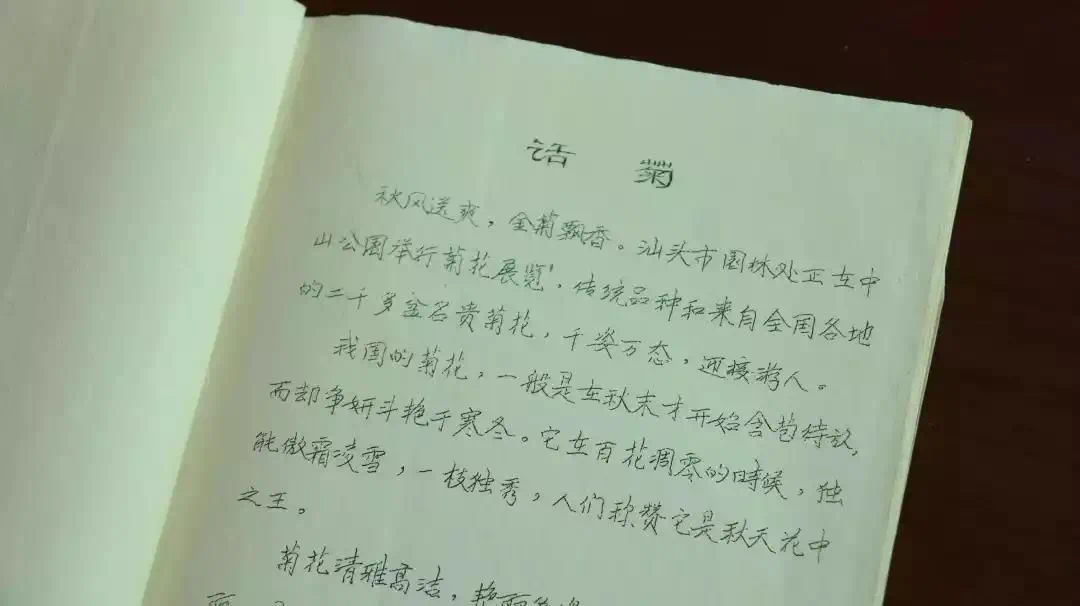 话 菊
秋风送爽，金菊飘香。汕头市园林处正在中
山公园举行菊花展览，传统品种和来自全国各地
的二千多盆名贵菊花，千姿万态，迎接游人。
我国的菊花，一般是在秋末才开始含苞待放，
而却争妍斗艳于寒冬。它在百花凋零的時候，独
能傲霜凌雪，一枝独秀，人们称赞它是秋天花中
之王。
菊花清雅高洁，艳丽